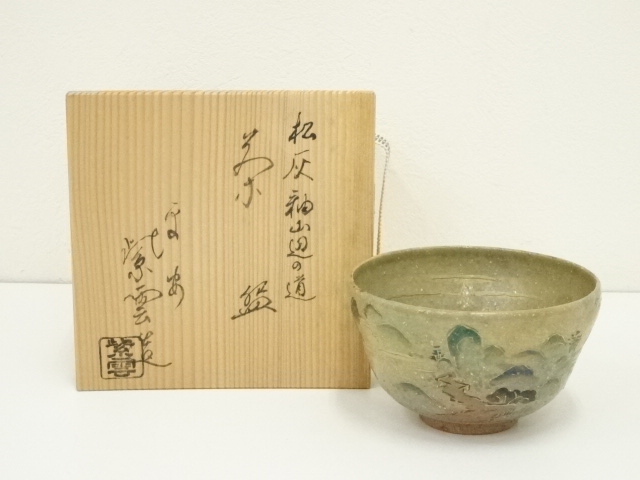 松灰釉山辺の道
茶盌
平安
紫雲造
紫雲